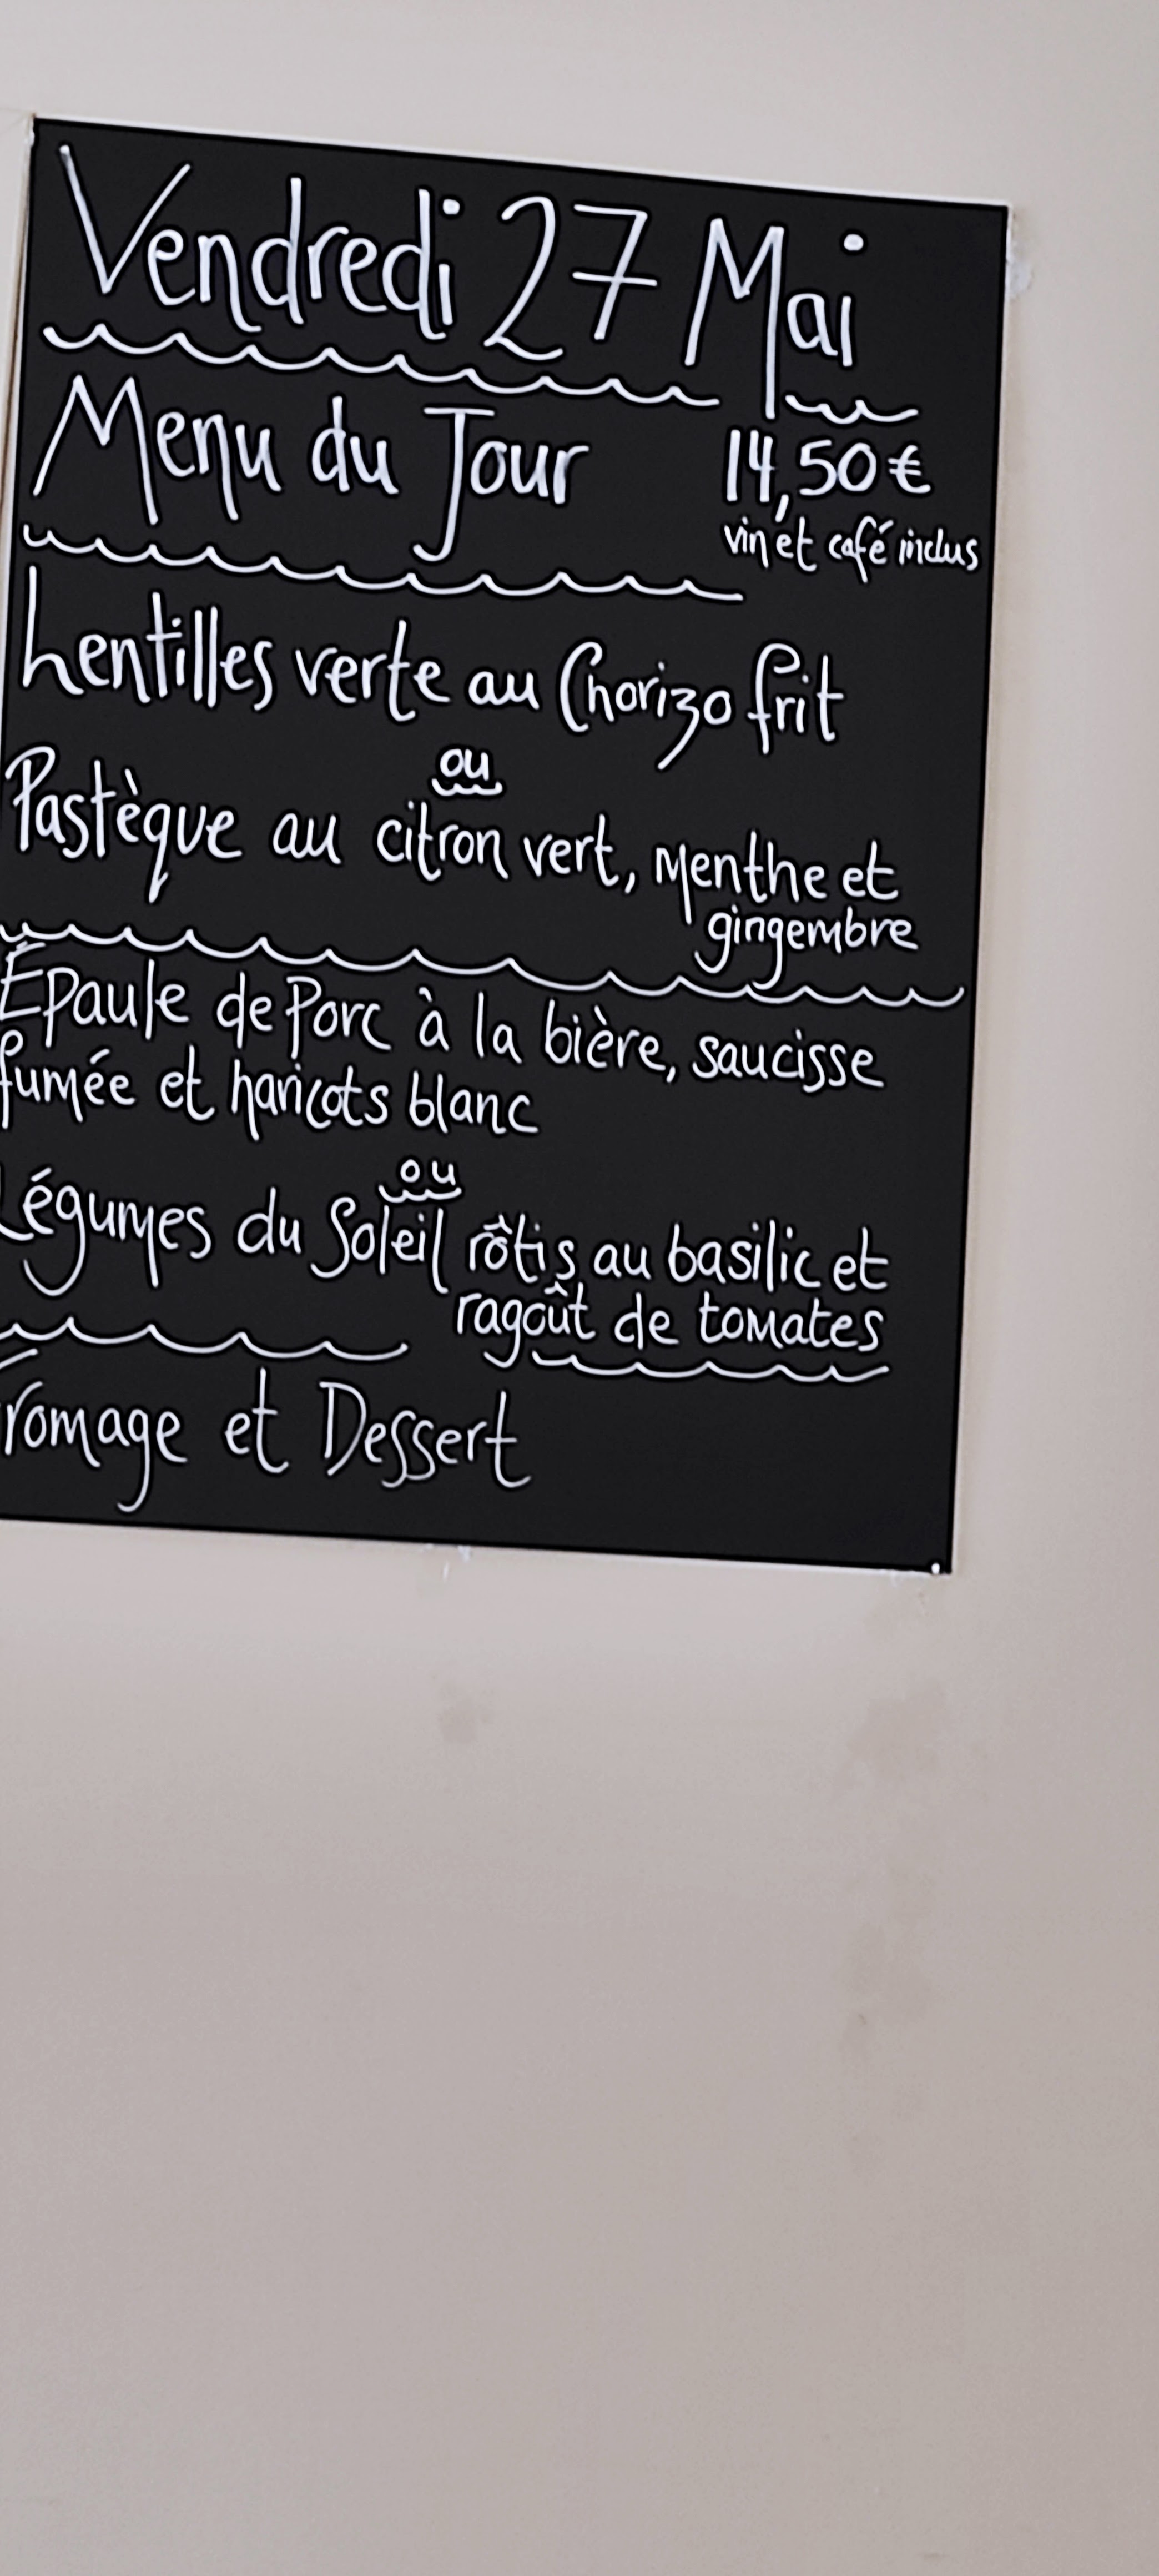 Vendredi 27 Mai
Menu du Jour 14,50 €
vin et café inclus
Lentilles verte au Chorizo frit
ou
Pastèque au citron vert, menthe et
gingembre
Épaule de Porc à la bière, saucisse
fumée et haricots blanc
ou
Légumes du Soleil rôtis au basilic et
ragoût de tomates
Fromage et Dessert